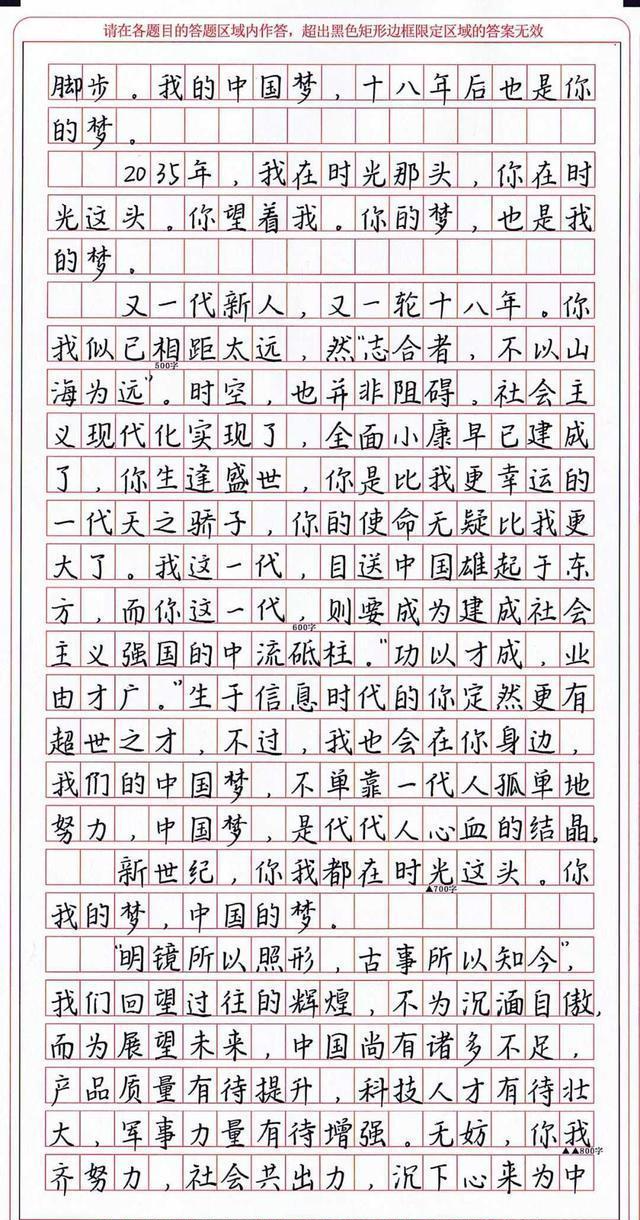 请在各题目的答题区域内作答，超出黑色矩形边框限定区域的答案无效
脚步。我的中国梦，十八年后也是你
的梦。
2035年，我在时光那头，你在时
光这头。你望着我。你的梦，也是我
的梦。
又一代新人，又一轮十八年。你
我似已相距太远，然"志合者，不以山
500字
海为远"。时空，也并非阻碍。社会主
义现代化实现了，全面小康早已建成
了，你生逢盛世，你是比我更幸运的
一代天之骄子，你的使命无疑比我更
大了。我这一代，目送中国雄起于东
方，而你这一代，则要成为建成社会
600字
主义强国的中流砥柱。"功以才成，业
由才广。"生于信息时代的你定然更有
超世之才，不过，我也会在你身边，
我们的中国梦，不单靠一代人孤单地
努力，中国梦，是代代人心血的结晶。
新世纪，你我都在时光这头。你
▲700字
我的梦，中国的梦。
"明镜所以照形，古事所以知今"，
我们回望过往的辉煌，不为沉湎自傲，
而为展望未来，中国尚有诸多不足，
产品质量有待提升，科技人才有待壮
大，军事力量有待增强。无妨，你我
▲▲800字
齐努力，社会共出力，沉下心来为中